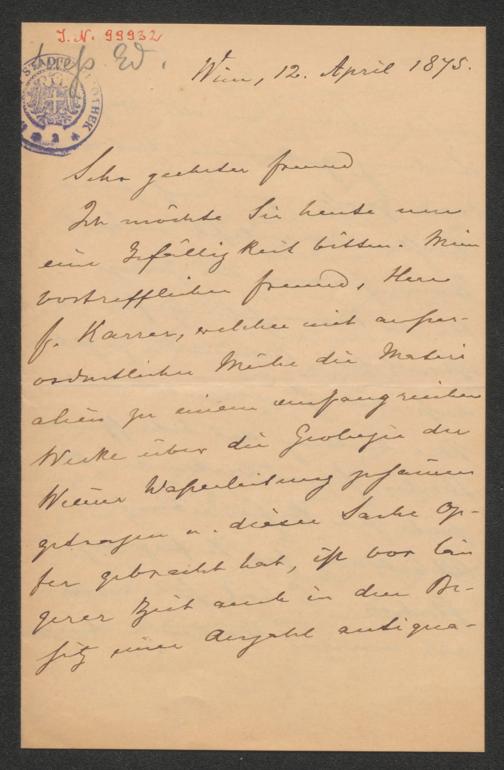 J. N. 99932
Ed.
Wien, 12. April 1875.
Sehr geehrter Freund
Ich möchte Sie heute um
eine Gefälligkeit bitten. Mein
vortrefflicher Freund, Herr
F. Karrer, welcher mit außer-
ordentlicher Mühe die Materi
alien zu einem umfangreichen
Werke über die Geologie der
Wiener Wasserleitung zusammen
getragen u. dieser Sache Op-
fer gebracht hat, ist vor län
gerer Zeit auch in den Be-
sitz einer Anzahl antiqua-